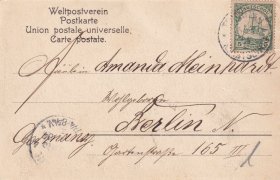 Weltpostverein
Postkarte
Union postale universelle.
Carte postale.
Fräulein Amanda Meinhardt
Wohlgeboren
Berlin N.
Germany
Gartenstraße 165 III